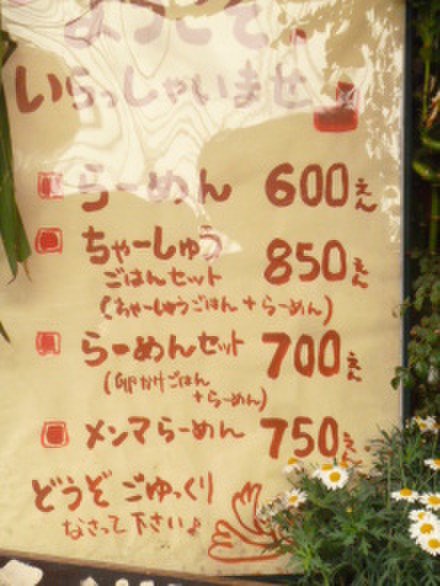 ようこそ、
いらっしゃいませ
らーめん 600えん
ちゃーしゅう
ごはんセット 850えん
(ちゃーしゅうごはん+らーめん)
らーめんセット 700えん
(卵かけごはん
+らーめん)
メンマらーめん 750えん
どうぞ ごゆっくり
なさって下さい♪